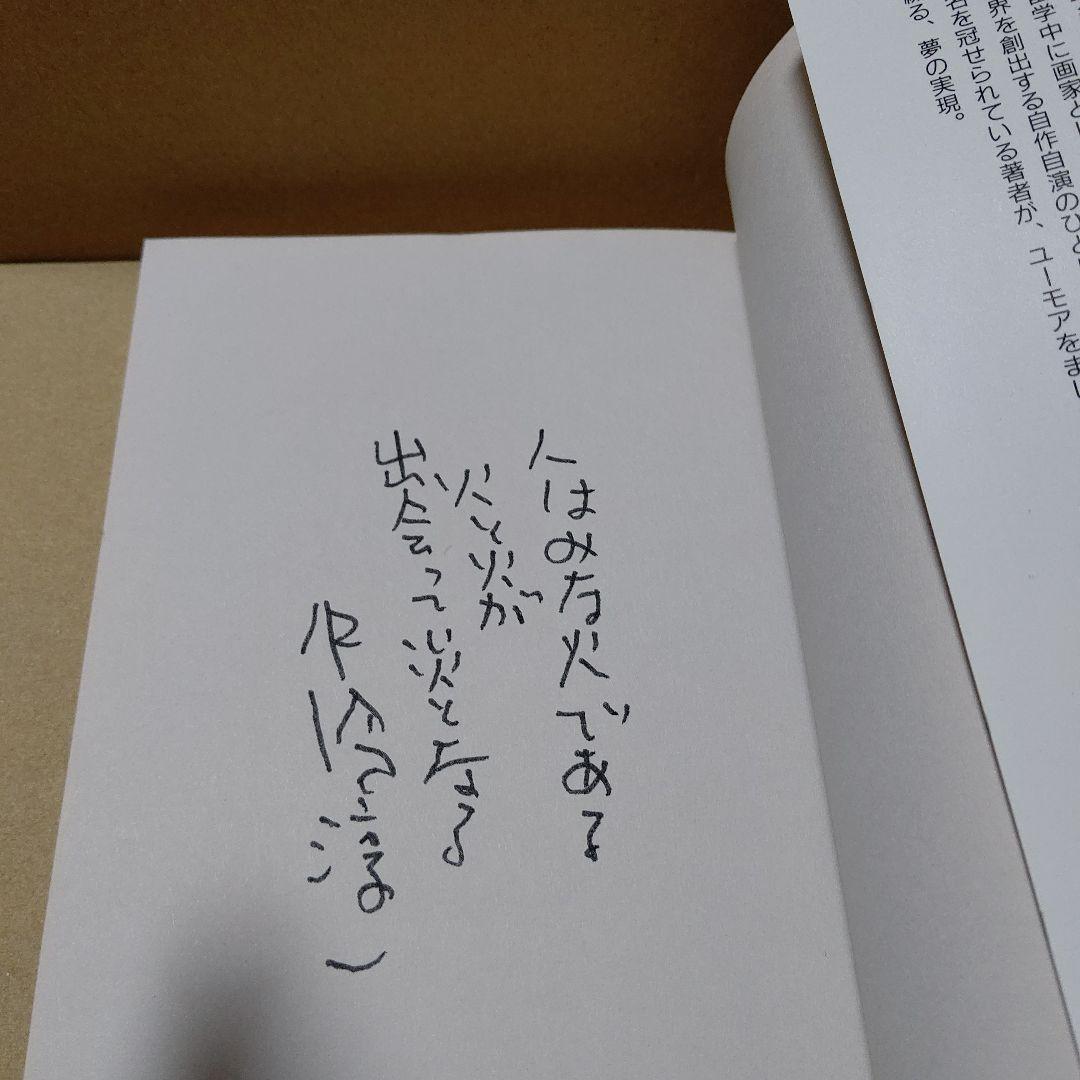 学中に画家とし
界を創出する自作自演のひと
を冠せられている著者が、ユーモアをまじ
る、夢の実現。
人はみな火である
火と火が
出会って炎となる